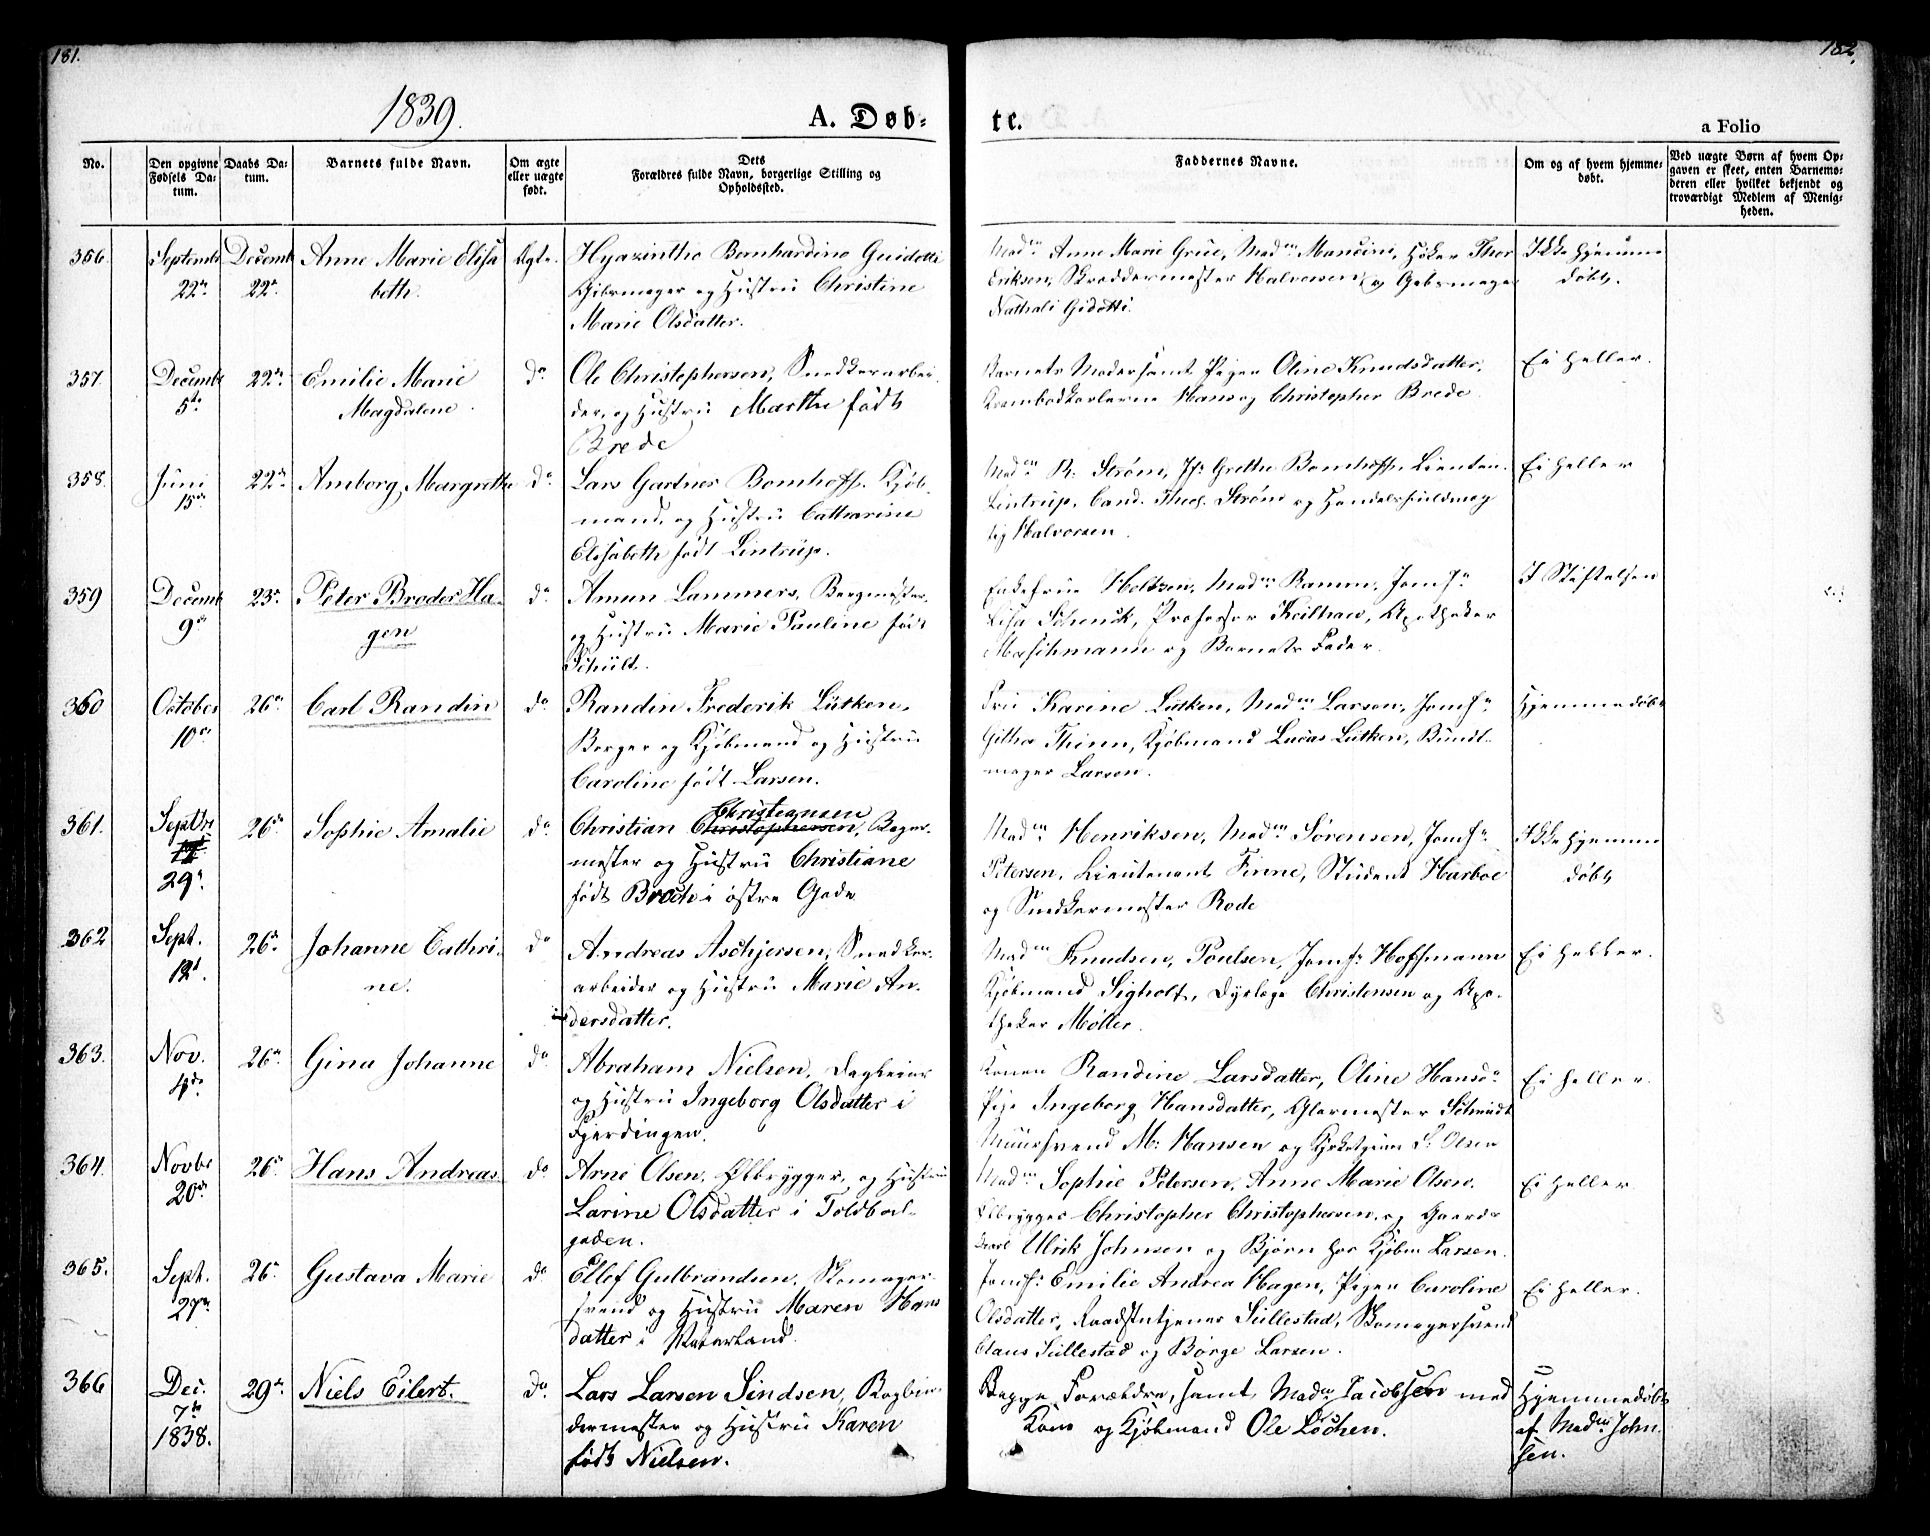 181.
182.
1839.
A. Døb-
te.
a Folio
No.
Den opgivne Fødsels Datum.
Daabs Datum.
Barnets fulde Navn.
Om ægte eller uægte født.
Dets Forældres fulde Navn, borgerlige Stilling og Opholdssted.
Faddernes Navne.
Om og af hvem hjemmedøbt.
Ved uægte Børn af hvem Opgaven er skeet, enten Barnemoderen eller hvilket bekjendt og troværdigt Medlem af Menigheden.
356.
Septembr
22de
Decemb
22de
Anne Marie Elisa
beth.
Ægte.
Hyazintho Bernhardino Guidotti
Gibsmager og Hustru Christine
Marie Olsdatter.
Madm Anne Marie Grüe, Madm Mancini, Høker Thor
Eriksen, Skræddermester Halvorsen og Gibsmager
Nathali Gidotti.
Ikke hjemme
døbt.
357.
Decembr
5te
22de
Emilie Marie
Magdalene.
do
Ole Christophersen, Snedkerarbei
der, og Hustru Marthe født
Brede
Barnets Moder samt Pigen Oline Knudsdatter,
Krambodkarlerne Hans og Christopher Brede
Ei heller.
358.
Juni
15de
22de
Amborg Margrethe
do
Lars Gardner Bomhoff, Kjøb
mand, og Hustru Catharine
Elisabeth født Lintrup.
Madm R. Strøm, Jfr Grethe Bomhoff, Lieuten.
Lintrup, Cand. Theol. Strøm og Handelsfuldmæg
tig Halvorsen.
Ei heller
359
Decemb
9de
23de
Peter Broder Ha-
gen
do
Amun Lammers, Bergmester,
og Hustru Marie Pauline født
Schült.
Enkefrue Holtzen, Madm Ramm, Jomfr
Lisa Schenck, Professor Keilhau, Apotheker
Maschmann og Barnets Fader.
I Stiftelsen
360
October
10de
26de
Carl Randin
do
Randin Frederik Lütken,
Borger og Kjøbmand og Hustru
Caroline født Larsen.
Frue Karine Lütken, Madm Larsen, Jomfr
Githa Thinn, Kjøbmand Lucas Lütken, Bundt-
mager Larsen.
Hjemmedøbt
361.
Septbr
29de
26de
Sophie Amalie
do
Christiansen
Christian Christophersen, Bager-
mester og Hustru Christiane
født Broch i østre Gade
Madm Henriksen, Madm Sørensen, Jomfr
Petersen, Lieutenant Finne, Student Harboe
og Snedkermester Rode
Ikke hjemme
døbt
362
Sept.
12te.
26de
Johanne Cathri-
ne.
do
Andreas Aschjersen, Snedker-
arbeider og Hustru Marie An-
dersdatter.
Madm Knudsen, Poulsen, Jomfr Hoffmann
Kjøbmand Sigholt, Dyrlæge Christensen og Apo-
theker Møller.
Ei heller.
363.
Nov.
4de
26de
Gina Johanne
do
Abraham Nielsen, Dagleier
og Hustru Ingeborg Olsdatter i
Fjerdingen.
Konen Randine Larsdatter, Oline Hansd.
Pige Ingeborg Hansdatter, Glarmester Schmidt
Muursvend M. Hansen og L. Olsen
Ei heller.
364.
Novbr
20de
26de
Hans Andreas
do
Arne Olsen, Ølbrygger, og Hustru
Larine Olsdatter i Toldbod-
gaden.
Madm Sophie Petersen, Anne Marie Olsen.
Ølbrygger Christopher Christophersen, og Gaards
karl Ulrik Johnsen og Bjørn hos Kjøbm Larsen.
Ei heller
365.
Sept.
27de
26de
Gustava Marie
do
Ellef Gulbrandsen, Skomager-
svend og Hustru Maren Hans
datter i Vaterland.
Jomfr Emilie Andrea Hagen, Pigen Caroline
Olsdatter, Raadstutjener Sullestad, Skomagersvend
Claus Sullestad og Børge Larsen.
Ei heller.
366
Dec.
7de
1838.
29de
Niels Eilert.
do
Lars Larsen Sindsen, Bogbin-
dermester og Hustru Karen
født Nielsen.
Begge Forældre, samt Madm Jacobsen med
Kone og Kjøbmand Ole Lochen.
Hjemmedøbt
af Madm John-
sen.